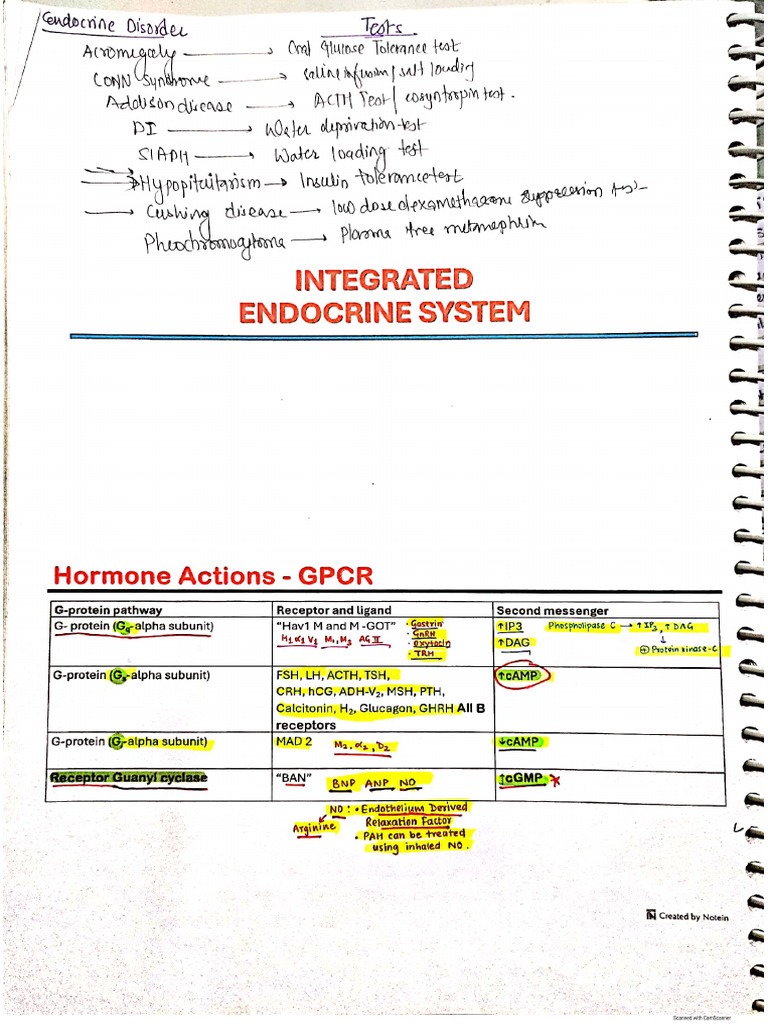 Endocrine Disorder Tests.
Acromegaly → Oral Glucose Tolerance test
CONN Syndrome → saline infusion/salt loading
Addison disease → ACTH Test/ cosyntropin test.
DI → Water deprivation test
SIADH → Water loading test
Hypopituitarism → Insulin tolerance test
Cushing disease → low dose dexamethasone suppression test
Pheochromocytoma → Plasma free metanephrin
INTEGRATED
ENDOCRINE SYSTEM
Hormone Actions - GPCR
G-protein pathway Receptor and ligand Second messenger
G- protein (Gq-alpha subunit) "Hav1 M and M -GOT" • Gastrin ↑IP3 Phospholipase C → ↑IP3, ↑DAG
H1 α1 V1 M1, M3 AG II • GnRH
• Oxytocin ↑DAG
• TRH ⊕ Protein kinase-C
G-protein (Gs-alpha subunit) FSH, LH, ACTH, TSH, ↑cAMP
CRH, hCG, ADH-V2, MSH, PTH,
Calcitonin, H2, Glucagon, GHRH All B
receptors
G-protein (Gi-alpha subunit) MAD 2 M2, α2, D2 ↓cAMP
Receptor Guanyl cyclase "BAN" BNP ANP NO ↑cGMP
NO : • Endothelium Derived
Arginine Relaxation Factor
• PAH can be treated
using inhaled NO.
Created by Notein
Scanned with CamScanner